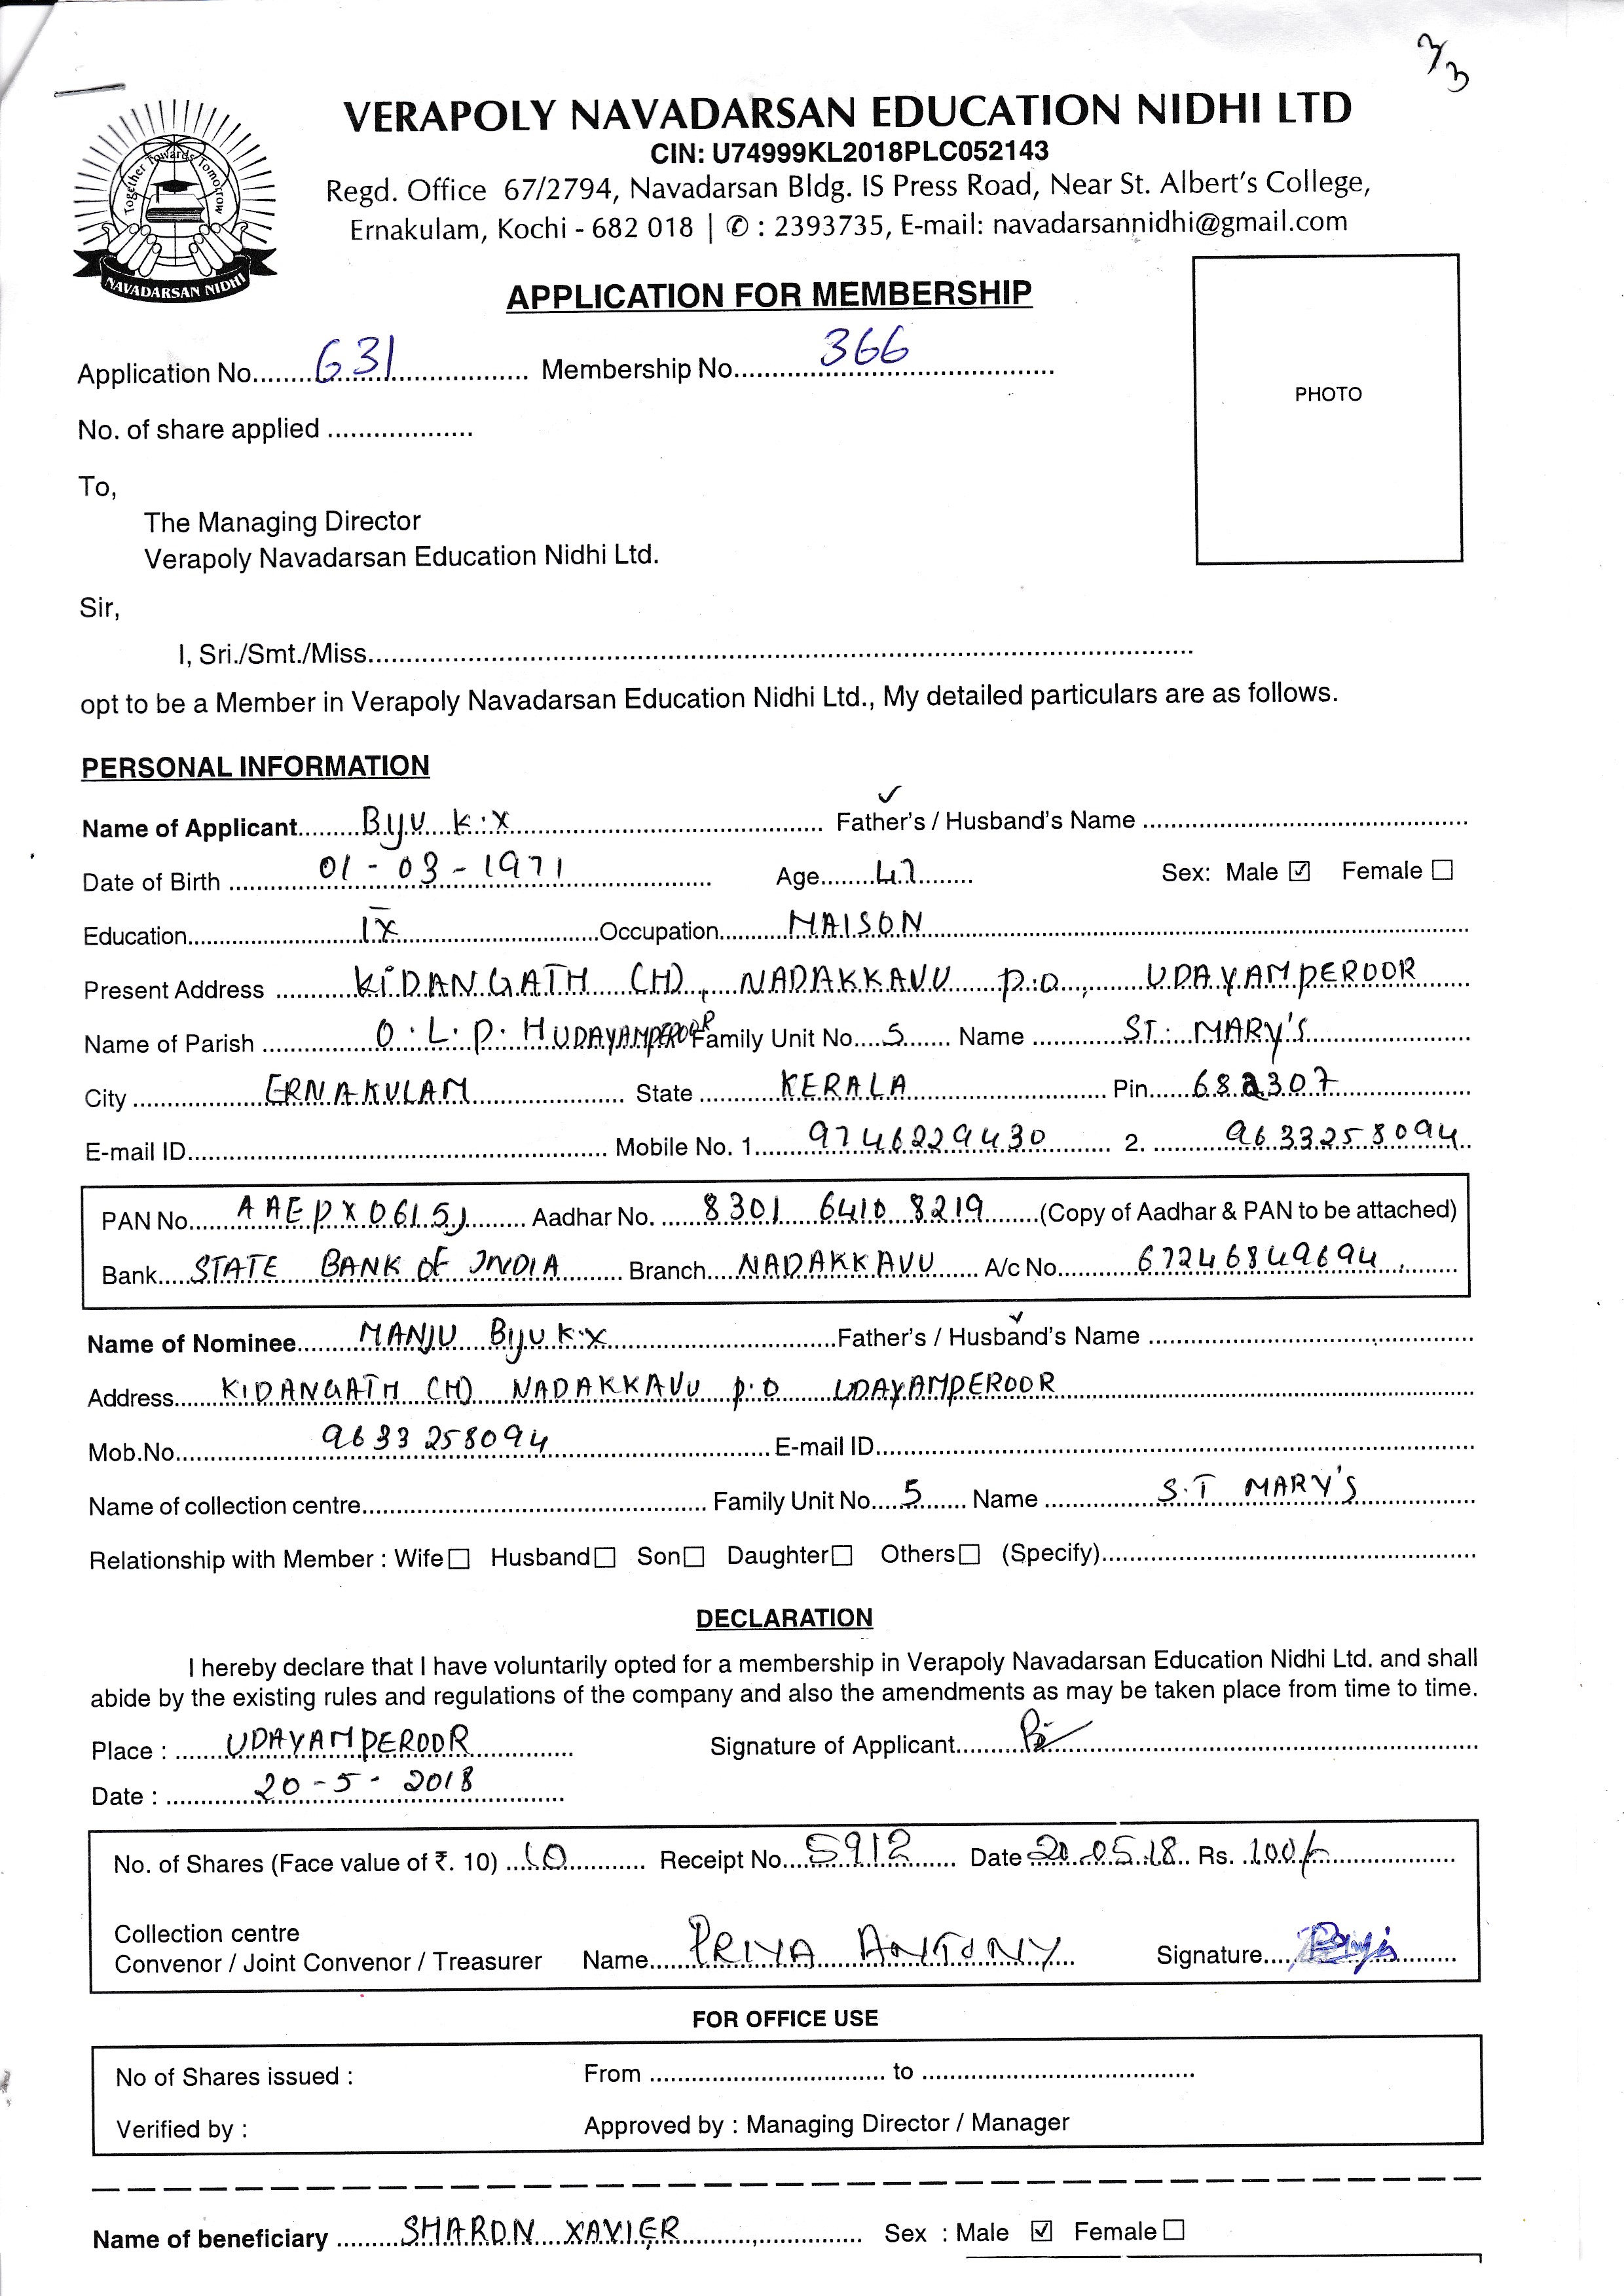 3/3
VERAPOLY NAVADARSAN EDUCATION NIDHI LTD
CIN: U74999KL2018PLC052143
Regd. Office 67/2794, Navadarsan Bldg. IS Press Road, Near St. Albert's College,
Ernakulam, Kochi - 682 018 | ✆ : 2393735, E-mail: navadarsannidhi@gmail.com
Together Towards Tomorrow
NAVADARSAN NIDHI
APPLICATION FOR MEMBERSHIP
Application No. 631 Membership No. 366
PHOTO
No. of share applied
To,
The Managing Director
Verapoly Navadarsan Education Nidhi Ltd.
Sir,
I, Sri./Smt./Miss
opt to be a Member in Verapoly Navadarsan Education Nidhi Ltd., My detailed particulars are as follows.
PERSONAL INFORMATION
Name of Applicant Biju K.X Father's / Husband's Name
Date of Birth 01 - 03 - 1971 Age 47 Sex: Male ☑ Female ☐
Education IX Occupation MAISON
Present Address KIDANGATH (H), NADAKKAVU P.O, UDAYAMPEROOR
Name of Parish O.L.P.H UDAYAMPEROOR Family Unit No. 5 Name ST. MARY'S
City ERNAKULAM State KERALA Pin 682307
E-mail ID Mobile No. 1. 9746229430 2. 9633258094
PAN No. AAEPX0615J Aadhar No. 8301 6410 8219 (Copy of Aadhar & PAN to be attached)
Bank STATE BANK OF INDIA Branch NADAKKAVU A/c No. 67246849694
Name of Nominee MANJU Biju K.X Father's / Husband's Name
Address KIDANGATH (H) NADAKKAVU P.O UDAYAMPEROOR
Mob.No. 9633 258094 E-mail ID
Name of collection centre Family Unit No. 5 Name S.T MARY'S
Relationship with Member : Wife ☐ Husband ☐ Son ☐ Daughter ☐ Others ☐ (Specify)
DECLARATION
I hereby declare that I have voluntarily opted for a membership in Verapoly Navadarsan Education Nidhi Ltd. and shall
abide by the existing rules and regulations of the company and also the amendments as may be taken place from time to time.
Place : UDAYAMPEROOR Signature of Applicant
Date : 20 - 5 - 2018
No. of Shares (Face value of ₹. 10) 10 Receipt No. 5912 Date 20.05.18 Rs. 100/-
Collection centre
Convenor / Joint Convenor / Treasurer Name PRIYA ANTONY Signature
FOR OFFICE USE
No of Shares issued : From to
Verified by : Approved by : Managing Director / Manager
Name of beneficiary SHARON XAVIER Sex : Male ☑ Female ☐